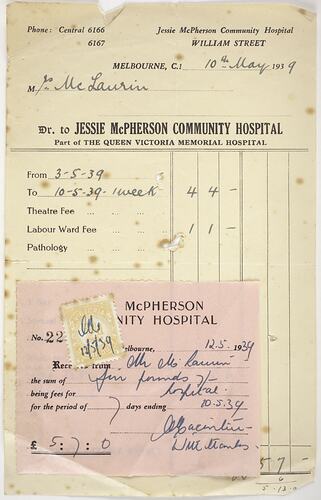 Phone: Central 6166 Jessie McPherson Community Hospital
6167 WILLIAM STREET
MELBOURNE, C.1 10th May 1939
Mrs McLaurin
Dr. to JESSIE McPHERSON COMMUNITY HOSPITAL
Part of THE QUEEN VICTORIA MEMORIAL HOSPITAL
From 3-5-39
To 10-5-39 1 week 4 4 -
Theatre Fee ... ... ...
Labour Ward Fee ... ... 1 1 -
Pathology ... ... ...
McPHERSON
NITY HOSPITAL
No. 22
elbourne, 12.5.1939
Rece from Mr McLaurin
the sum of five pounds 7/-
being fees for hospital.
for the period of 7 days ending 10-5-39
With thanks
£ 5:7:0
12/5/39
5 7 -